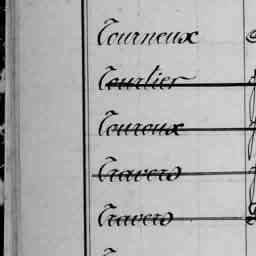 Tourneux
Tourlier
Touroux
Travers
Travers